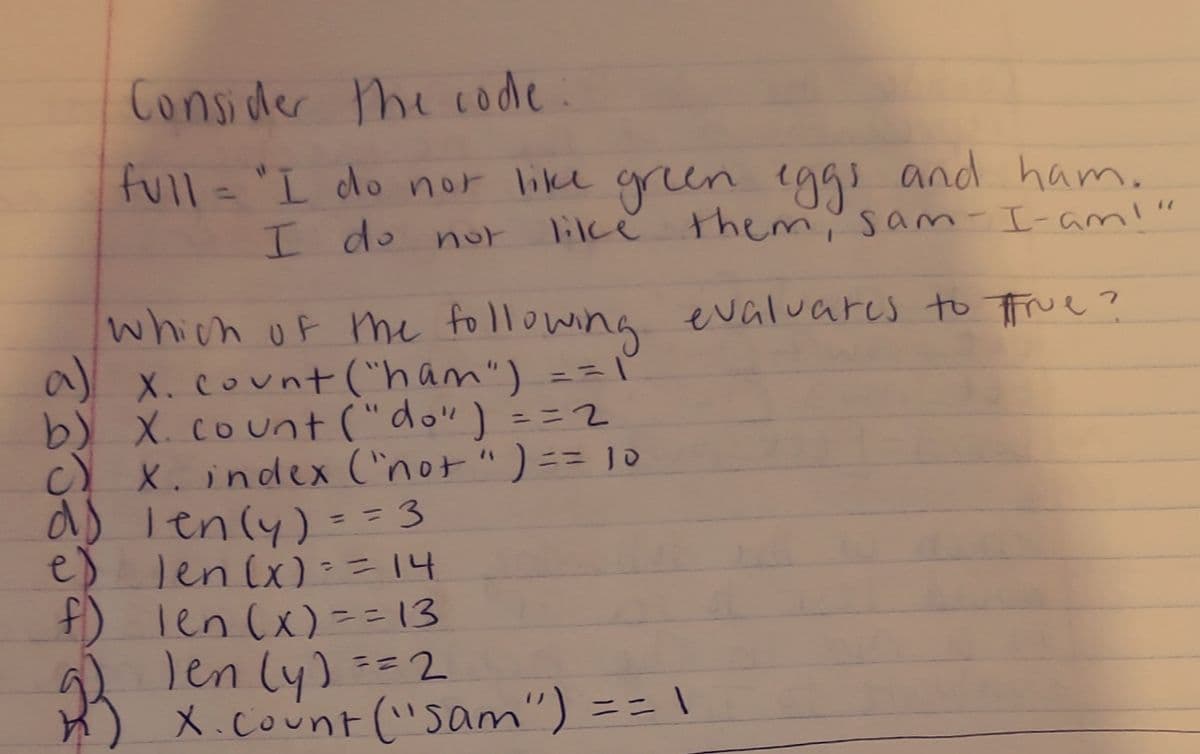 Consider the code:
full = "I do not like green eggs and ham.
I do not like them, sam-I-am!"
which of the following evaluates to true?
a) x.count("ham") ==1
b) x.count("do") ==2
c) x.index("not") == 10
d) len(y) == 3
e) len(x) == 14
f) len(x) == 13
g) len(y) ==2
h) x.count("sam") == 1